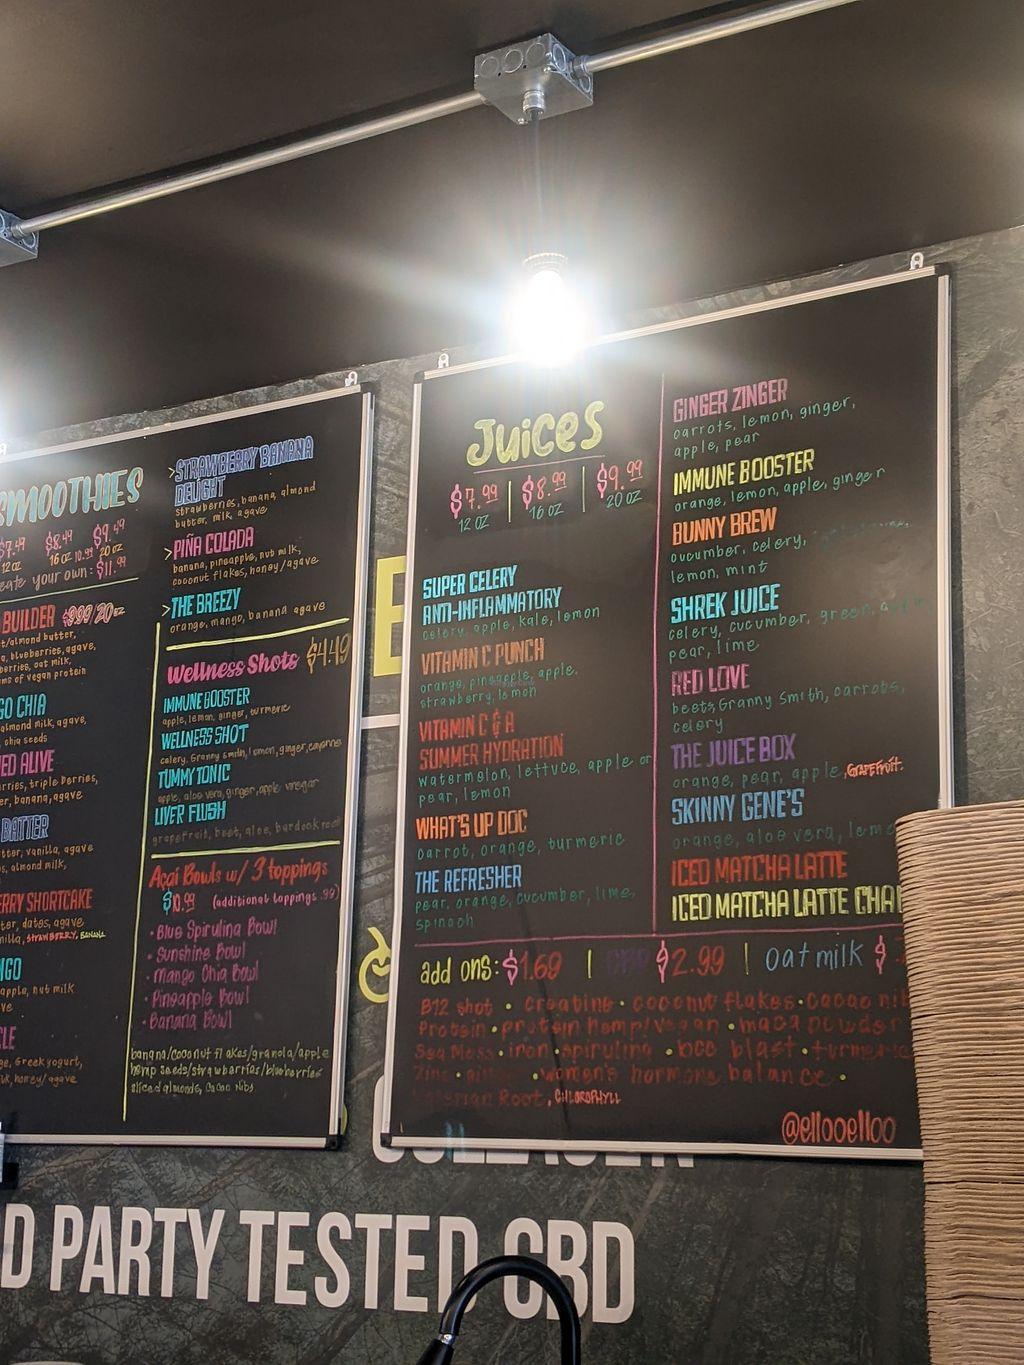 SMOOTHIES
$7.49 $8.49 $9.49
12 OZ 16 OZ 20 OZ
eate your own: $11.99
BUILDER $9.99/20 oz
t/almond butter,
a, blueberries, agave,
berries, oat milk,
ms of vegan protein
GO CHIA
almond milk, agave,
chia seeds
ED ALIVE
erries, triple berries,
r, banana, agave
BATTER
tter, vanilla, agave
s, almond milk,
ERRY SHORTCAKE
ter, dates, agave
nilla, STRAWBERRY, BANANA
NGO
apple, nut milk
CLE
ge, Greek yogurt,
ilk, honey/agave
>STRAWBERRY BANANA
DELIGHT
strawberries, banana, almond
butter, milk, agave
>PIÑA COLADA
banana, pineapple, nut milk,
coconut flakes, honey/agave
>THE BREEZY
orange, mango, banana agave
Wellness Shots $4.49
IMMUNE BOOSTER
apple, lemon, ginger, turmeric
WELLNESS SHOT
celery, Granny smith, lemon, ginger, cayenne
TUMMY TONIC
apple, aloe vera, ginger, apple vinegar
LIVER FLUSH
grapefruit, beet, aloe, burdock root
Açaí Bowls w/ 3 toppings
$10.99 (additional toppings .99)
• Blue Spirulina Bowl
• Sunshine Bowl
• Mango Chia Bowl
• Pineapple Bowl
• Banana Bowl
banana/coconut flakes/granola/apple
hemp seeds/strawberries/blueberries
sliced almonds, Cacao Nibs
Juices
$7.99 | $8.99 | $9.99
12 OZ 16 OZ 20 OZ
SUPER CELERY
ANTI-INFLAMMATORY
celery, apple, kale, lemon
VITAMIN C PUNCH
orange, pineapple, apple,
strawberry, lemon
VITAMIN C & A
SUMMER HYDRATION
watermelon, lettuce, apple or
pear, lemon
WHAT'S UP DOC
carrot, orange, turmeric
THE REFRESHER
pear, orange, cucumber, lime,
spinach
GINGER ZINGER
carrots, lemon, ginger,
apple, pear
IMMUNE BOOSTER
orange, lemon, apple, ginger
BUNNY BREW
cucumber, celery,
lemon, mint
SHREK JUICE
celery, cucumber, green, apple,
pear, lime
RED LOVE
beets, Granny Smith, carrots,
celery
THE JUICE BOX
orange, pear, apple, GRAPEFRUIT.
SKINNY GENE'S
orange, aloe vera, lemo
ICED MATCHA LATTE
ICED MATCHA LATTE CHA
add ons: $1.69 | CBD $2.99 | oat milk $
B12 shot • creatine • coconut flakes • cacao nib
Protein • protein hemp/vegan • maca powder
Sea Moss • iron • spirulina • bcc blast • turmeric
Zinc • ginger • women's hormone balance •
Valerian Root, CHLOROPHYLL
@ellooelloo
COLLAGEN
D PARTY TESTED CBD